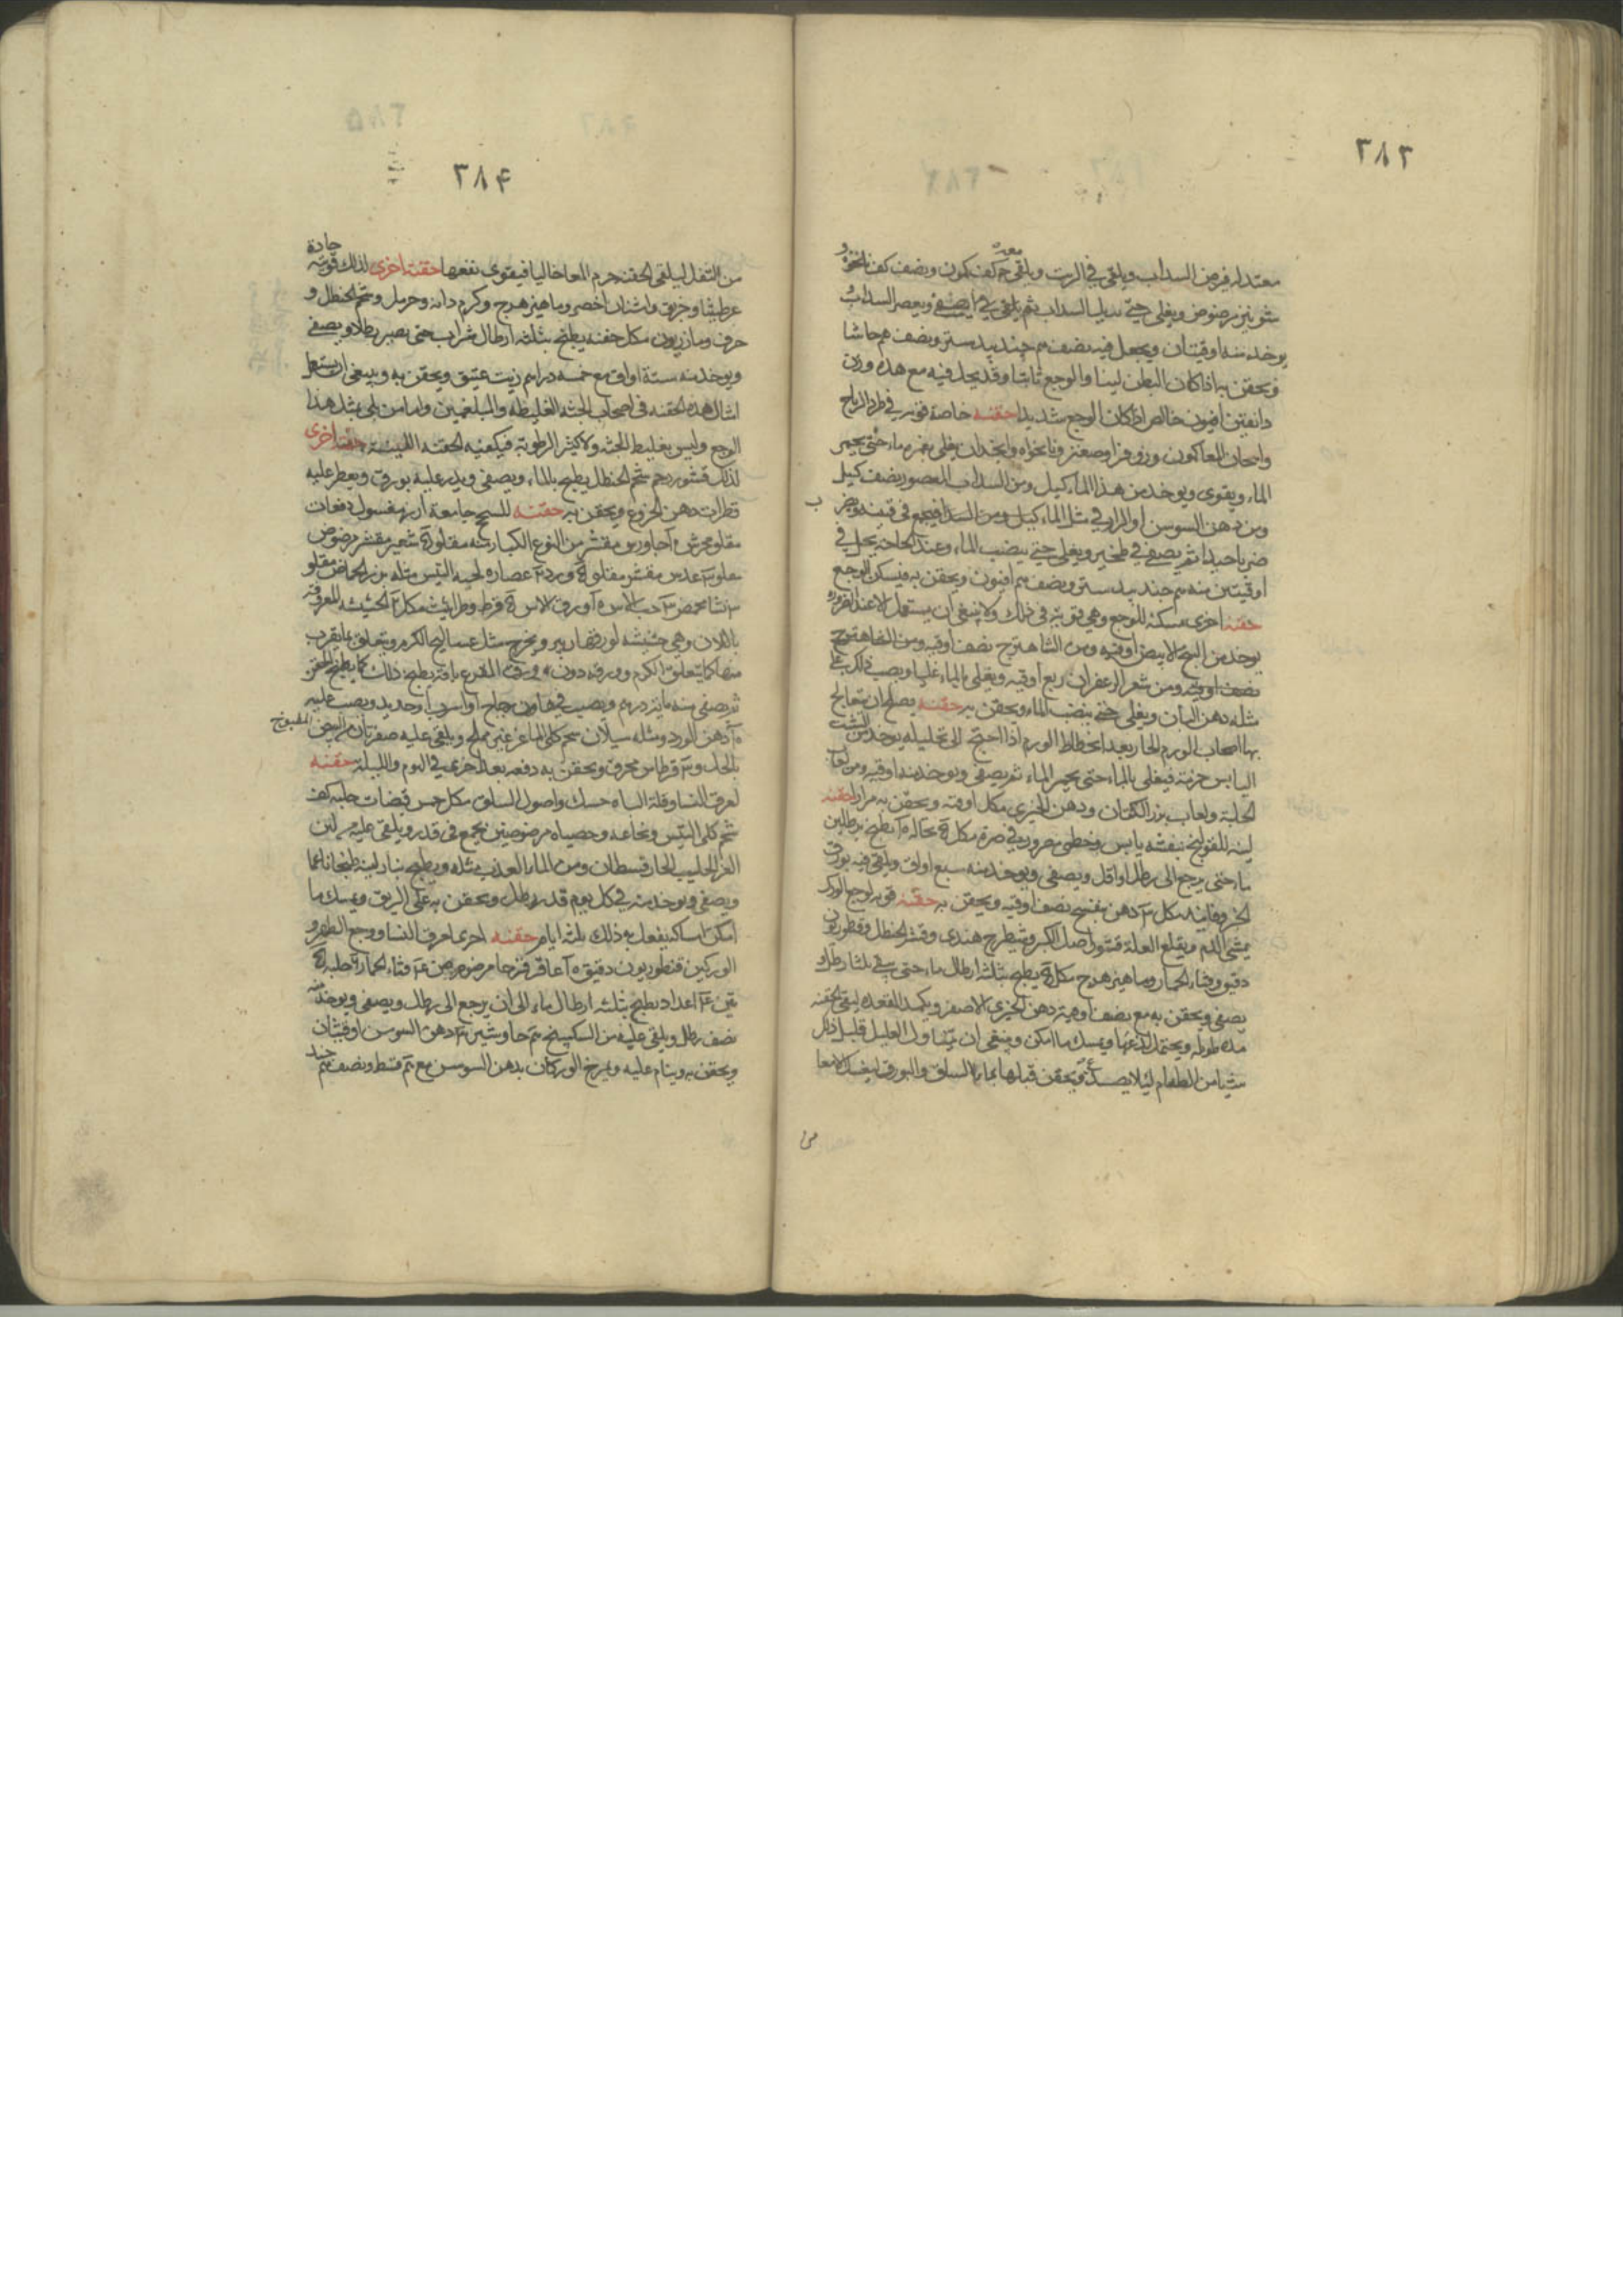 ٣٨٣
معتدلة فيرض السداب ويلقى في الزيت ويلقى معه كف كمون ونصف كف نانخواه و
شونيز مرضوض ويغلى حتى يذبل السداب ثم يصفى ويعصر السداب
يوخذ منه اوقيتان ويجعل فيه نصف جندبيدستر ونصف جاشا
ويحقن به اذا كان البطن لينا والوجع ثابتا وقد يجعل فيه مع هذه وزن
دانقين افيون خالص اذا كان الوجع شديدا حقنة خاصة قوية في طرد الرياح
واسخان المعا كمون وزوفرا وصعتر ونانخواه وانجدان يغلى بغمره ماء حتى يحمر
الماء ويقوى ويوخذ من هذا الماء كيل ومن السداب المعصور نصف كيل
ومن دهن السوسن او الرازقي مثل الماء كيل ومن السداب فيجمع في قنينه ويضرب
ضربا جيدا ثم يصفى في طنجير ويغلى حتى ينضب الماء وعند الحاجة يجعل في
اوقيتين منه جندبيدستر ونصف افيون ويحقن به فيسكن الوجع
حقنة اخرى مسكنة للوجع وهي قوية في ذلك ولا ينبغي ان يستعمل الا عند الضرورة
يوخذ من البنج الابيض اوقية ومن الشاهترج نصف اوقية ومن
نصف اوقية ومن شعر الزعفران ربع اوقية ويغلى بالماء غليا ويصب ذلك على
مثله دهن البان ويغلى حتى ينضب الماء ويحقن به حقنة يصلح ان يتعالج
بها اصحاب الورم الحار بعد انحطاط الورم اذا احتيج الى تحليله يوخذ من الشبت
اليابس حزمة فيغلى بالماء حتى يحمر الماء ثم يصفى ويوخذ منه اوقية ومن لعاب
الحلبة ولعاب بزر الكتان ودهن الخيري مكل اوقية ويحقن به مرارا حقنة
لينة للقولنج بنفشه يابس وخطمي مرور في صرة نخالة يطبخ برطلين
ماء حتى يرجع الى رطل او اقل ويصفى ويوخذ منه سبع اواق ويلقى فيه بورق
الخبز وفانيد مكل دهن بنفسج نصف اوقية ويحقن به حقنة قوية لوجع الورك
يمشى الدم ويقلع العلة قشور اصل الكبر وشيطرج هندي وقشر الحنظل وقنطوريون
دقيق وقثاء الحمار وماهيزهرج يطبخ بثلثة ارطال ماء حتى يبقى ثلثا رطل
يصفى ويحقن به مع نصف اوقية دهن الخيري الاصفر ويكمد المقعدة ليبقى الحقنة
مدة طويلة ويحتمل لذعها ويمسك ما امكن وينبغي ان يتناول العليل قبل ذلك
شيا من الطعام لئلا يصعد ويحقن قبلها بماء السلق والبورق ليغسل الامعا
من
٣٨٤
من الثفل ليلقى الحقنة جرم المعا خاليا فيقوى نفعها حقنة اخرى لذلك قوية حادة
عرطنيثا وخربق واشنان اخضر وماهيزهرج وكرم دانه وحرمل وشحم الحنظل و
حرف ومازريون مكل حفنة يطبخ بثلثة ارطال شراب حتى يصير رطلا ويصفى
ويوخذ منه ستة اواق مع خمسة دراهم زيت عتيق ويحقن به وينبغي ان يستعمل
امثال هذه الحقنة في اصحاب الجثة الغليظة والبلغميين واما من بلي بمثل هذا
الوجع وليس بغليظ الجثة ولا كثير الرطوبة فيكفيه الحقنة اللينة حقنة اخرى
لذلك قشور شحم الحنظل يطبخ بالماء ويصفى ويذر عليه بورق ويقطر عليه
قطرات دهن الخروع ويحقن به حقنة للسحج جامعة ارز مغسول دفعات
مقلو مجرش جاورس مقشر من النوع الكبار منه مقلو شعير مقشر مرضوض
مقلو عدس مقشر مقلو ورد عصارة لحية التيس مثله بزر الحماض مقلو
نشا محمص حب الاس ورق الاس قرط وطراثيث مكل الحشيشة المعروفة
باللان وهي حشيشة لورقتها زبير ويخرج مثل عساليج الكرم ويتعلق بما يقرب
منها كما يتعلق الكرم وورقه دون ورق القرع باقة يطبخ ذلك كما يطبخ الحقن
ثم يصفى منه مائة درهم ويصب في هاون زجاج او اسرب او حديد ويصب عليه
دهن الورد ومثله سيلان شحم كلى الماعز غير مملح ويلقى عليه صفرتان من البيض المطبوخ
بالخل و قرطاس محرق ويحقن به دفعة بعد اخرى في اليوم والليلة حقنة
لعرق النسا وقلة الباه حسك واصول السلق مكل خمس قبضات حلبة كف
شحم كلى التيس ونخاعه وخصياه مرضوضين يجمع في قدر ويلقى عليه من لبن
الغنم الحليب الحار قسطان ومن الماء العذب مثله ويطبخ بنار لينة طبخا ناعما
ويصفى ويوخذ منه في كل يوم قدر رطل ويحقن به على الريق ويمسك ما
امكن امساكه يفعل به ذلك ثلثة ايام حقنة اخرى لعرق النسا ووجع الظهر و
الوركين قنطوريون دقيق عاقرقرحا مرضوض قثاء الحمار حلبة
تين اعداد يطبخ بثلثة ارطال ماء الى ان يرجع الى رطل ويصفى ويوخذ منه
نصف رطل ويلقى عليه من السكبينج جاوشير دهن السوسن اوقيتان
ويحقن به وينام عليه ويمرخ الوركان بدهن السوسن مع قسط ونصف جند